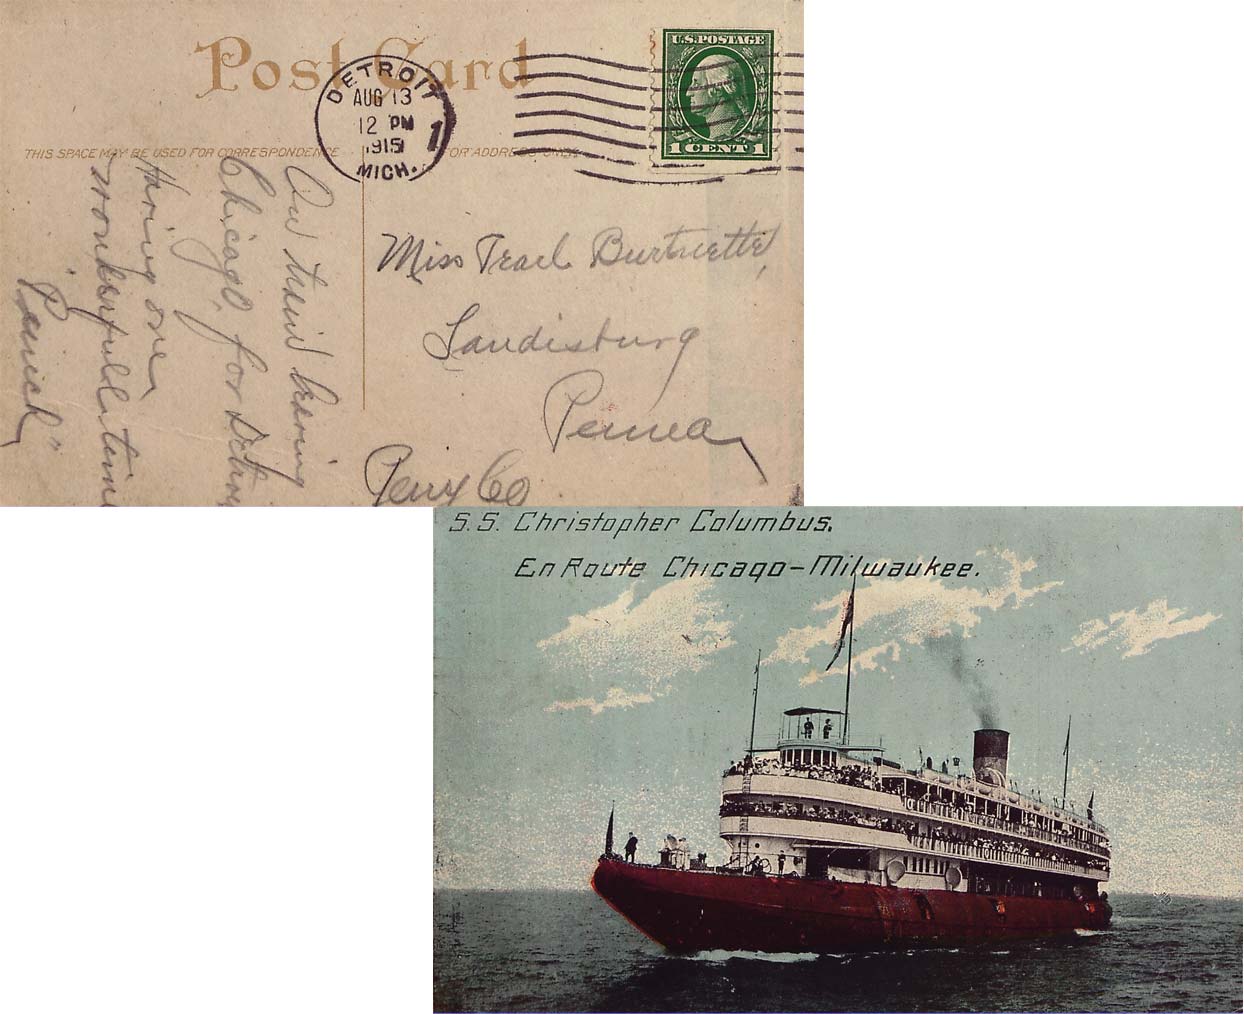 Post Card
U.S. POSTAGE
1 CENT 1
DETROIT
AUG 13
12 PM
1915
MICH.
1
THIS SPACE MAY BE USED FOR CORRESPONDENCE
FOR ADDRESS ONLY
On train leaving
Chicago, for Detroi
Having one
wonderfull time
Miss Pearl Burtnette,
Landisburg
Penna
Perry Co
S.S. Christopher Columbus.
En Route Chicago-Milwaukee.